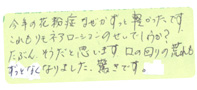 今年の花粉症なぜかずっと軽かったです
これもリモネアローションのせいでしょうか？
たぶん、そうだと思います 口の回りの荒れも
ずっとなくなりました。驚きです。